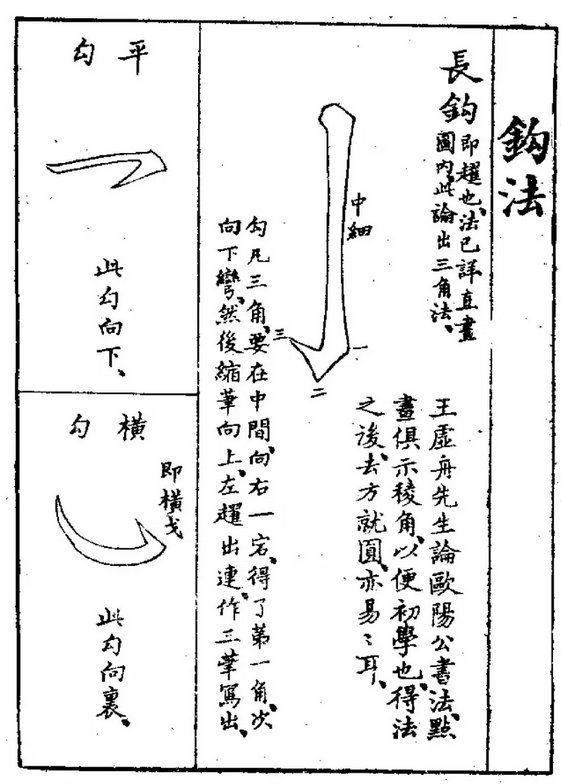 鈎法
長鈎即趯也、法已詳直畫
圖內、此論出三角法、
中細
一
二
三
王虛舟先生論歐陽公書法、點
畫俱示稜角、以便初學也、得法
之後、去方就圓、亦易〻耳、
勾凡三角、要在中間、向右一宕、得了第一角、次
向下彎、然後縮筆向上、左趯出連作三筆寫出、
平勾
此勾向下、
橫勾
即橫戈
此勾向裏、